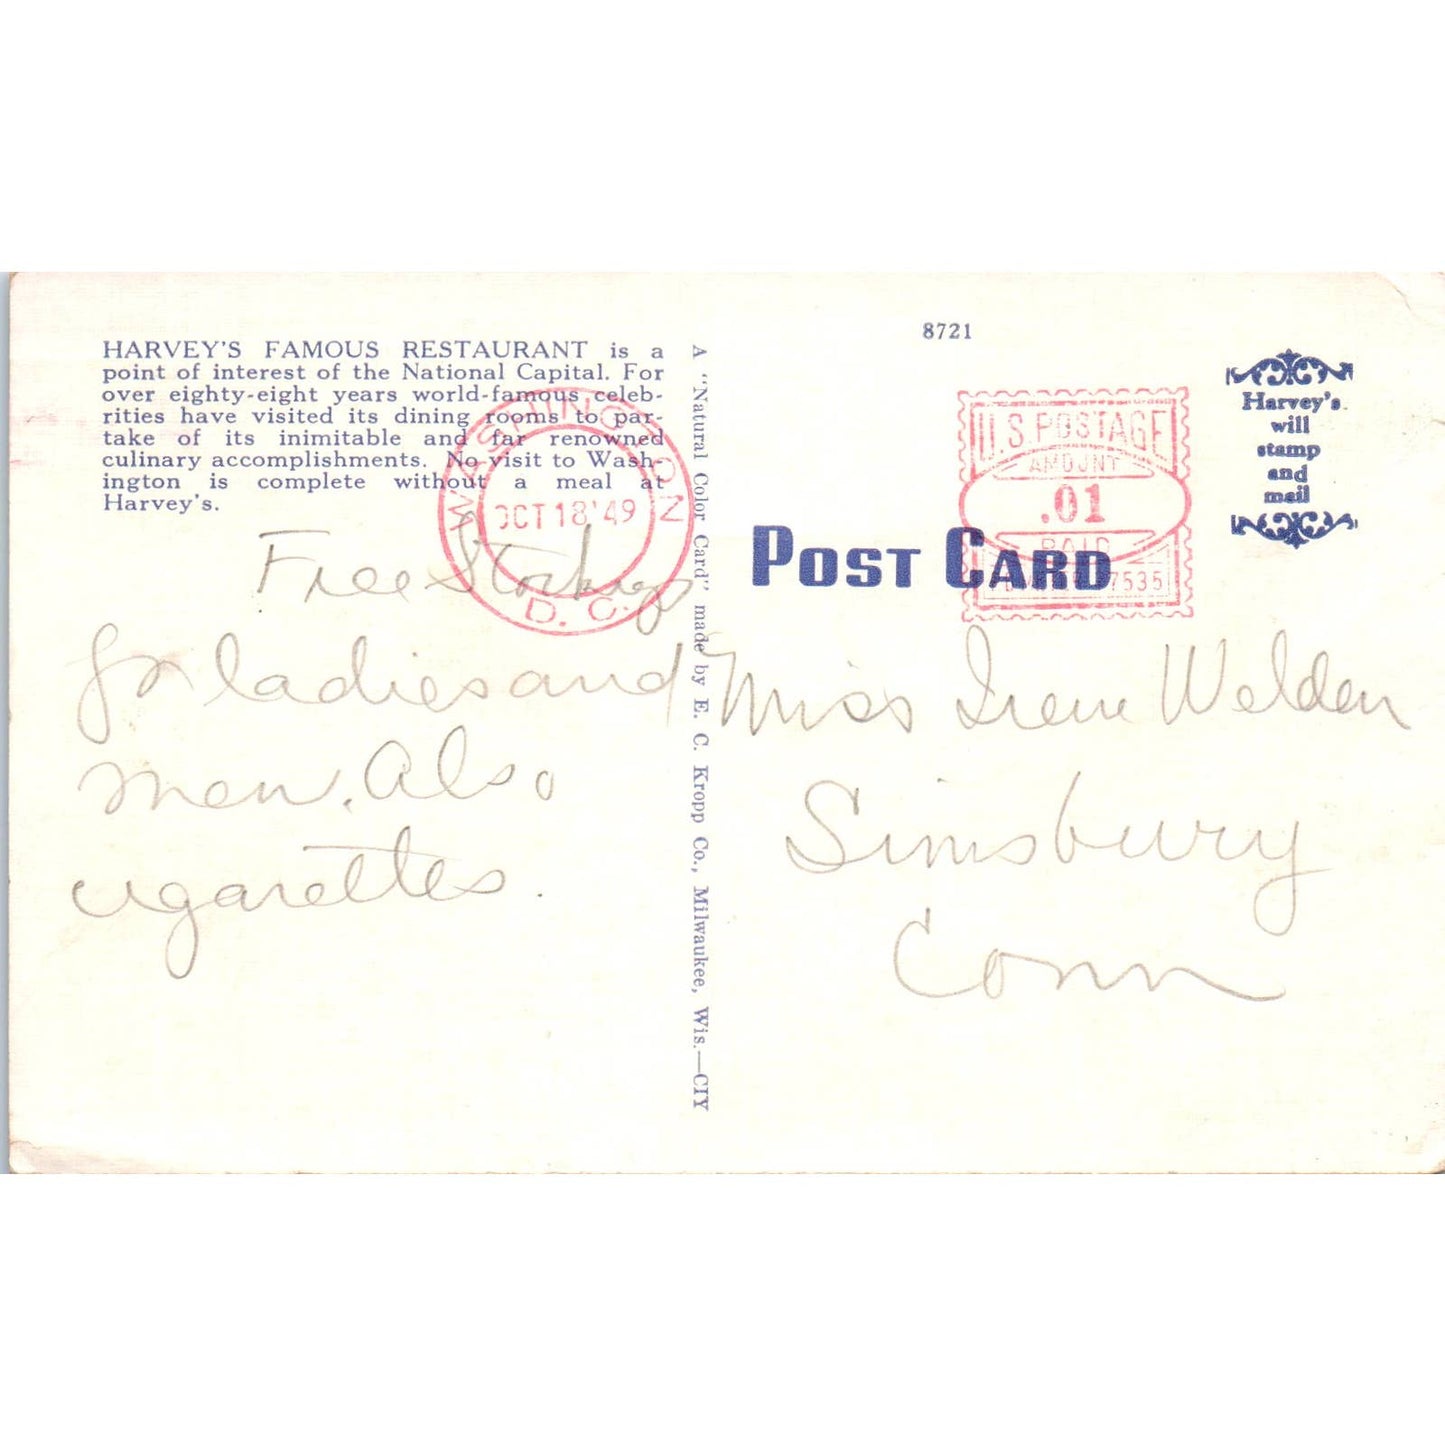 HARVEY'S FAMOUS RESTAURANT is a
point of interest of the National Capital. For
over eighty-eight years world-famous celeb-
rities have visited its dining rooms to par-
take of its inimitable and far renowned
culinary accomplishments. No visit to Wash-
ington is complete without a meal at
Harvey's.
WASHINGTON
OCT 18 '49
D. C.
Free Stockings
for ladies and
men. Also
cigarettes.
A "Natural Color Card" made by E. C. Kropp Co., Milwaukee, Wis.—CIY
8721
U.S. POSTAGE
AMOUNT
.01
PAID
7535
Harvey's
will
stamp
and
mail
POST CARD
Miss Irene Welden
Simsbury
Conn